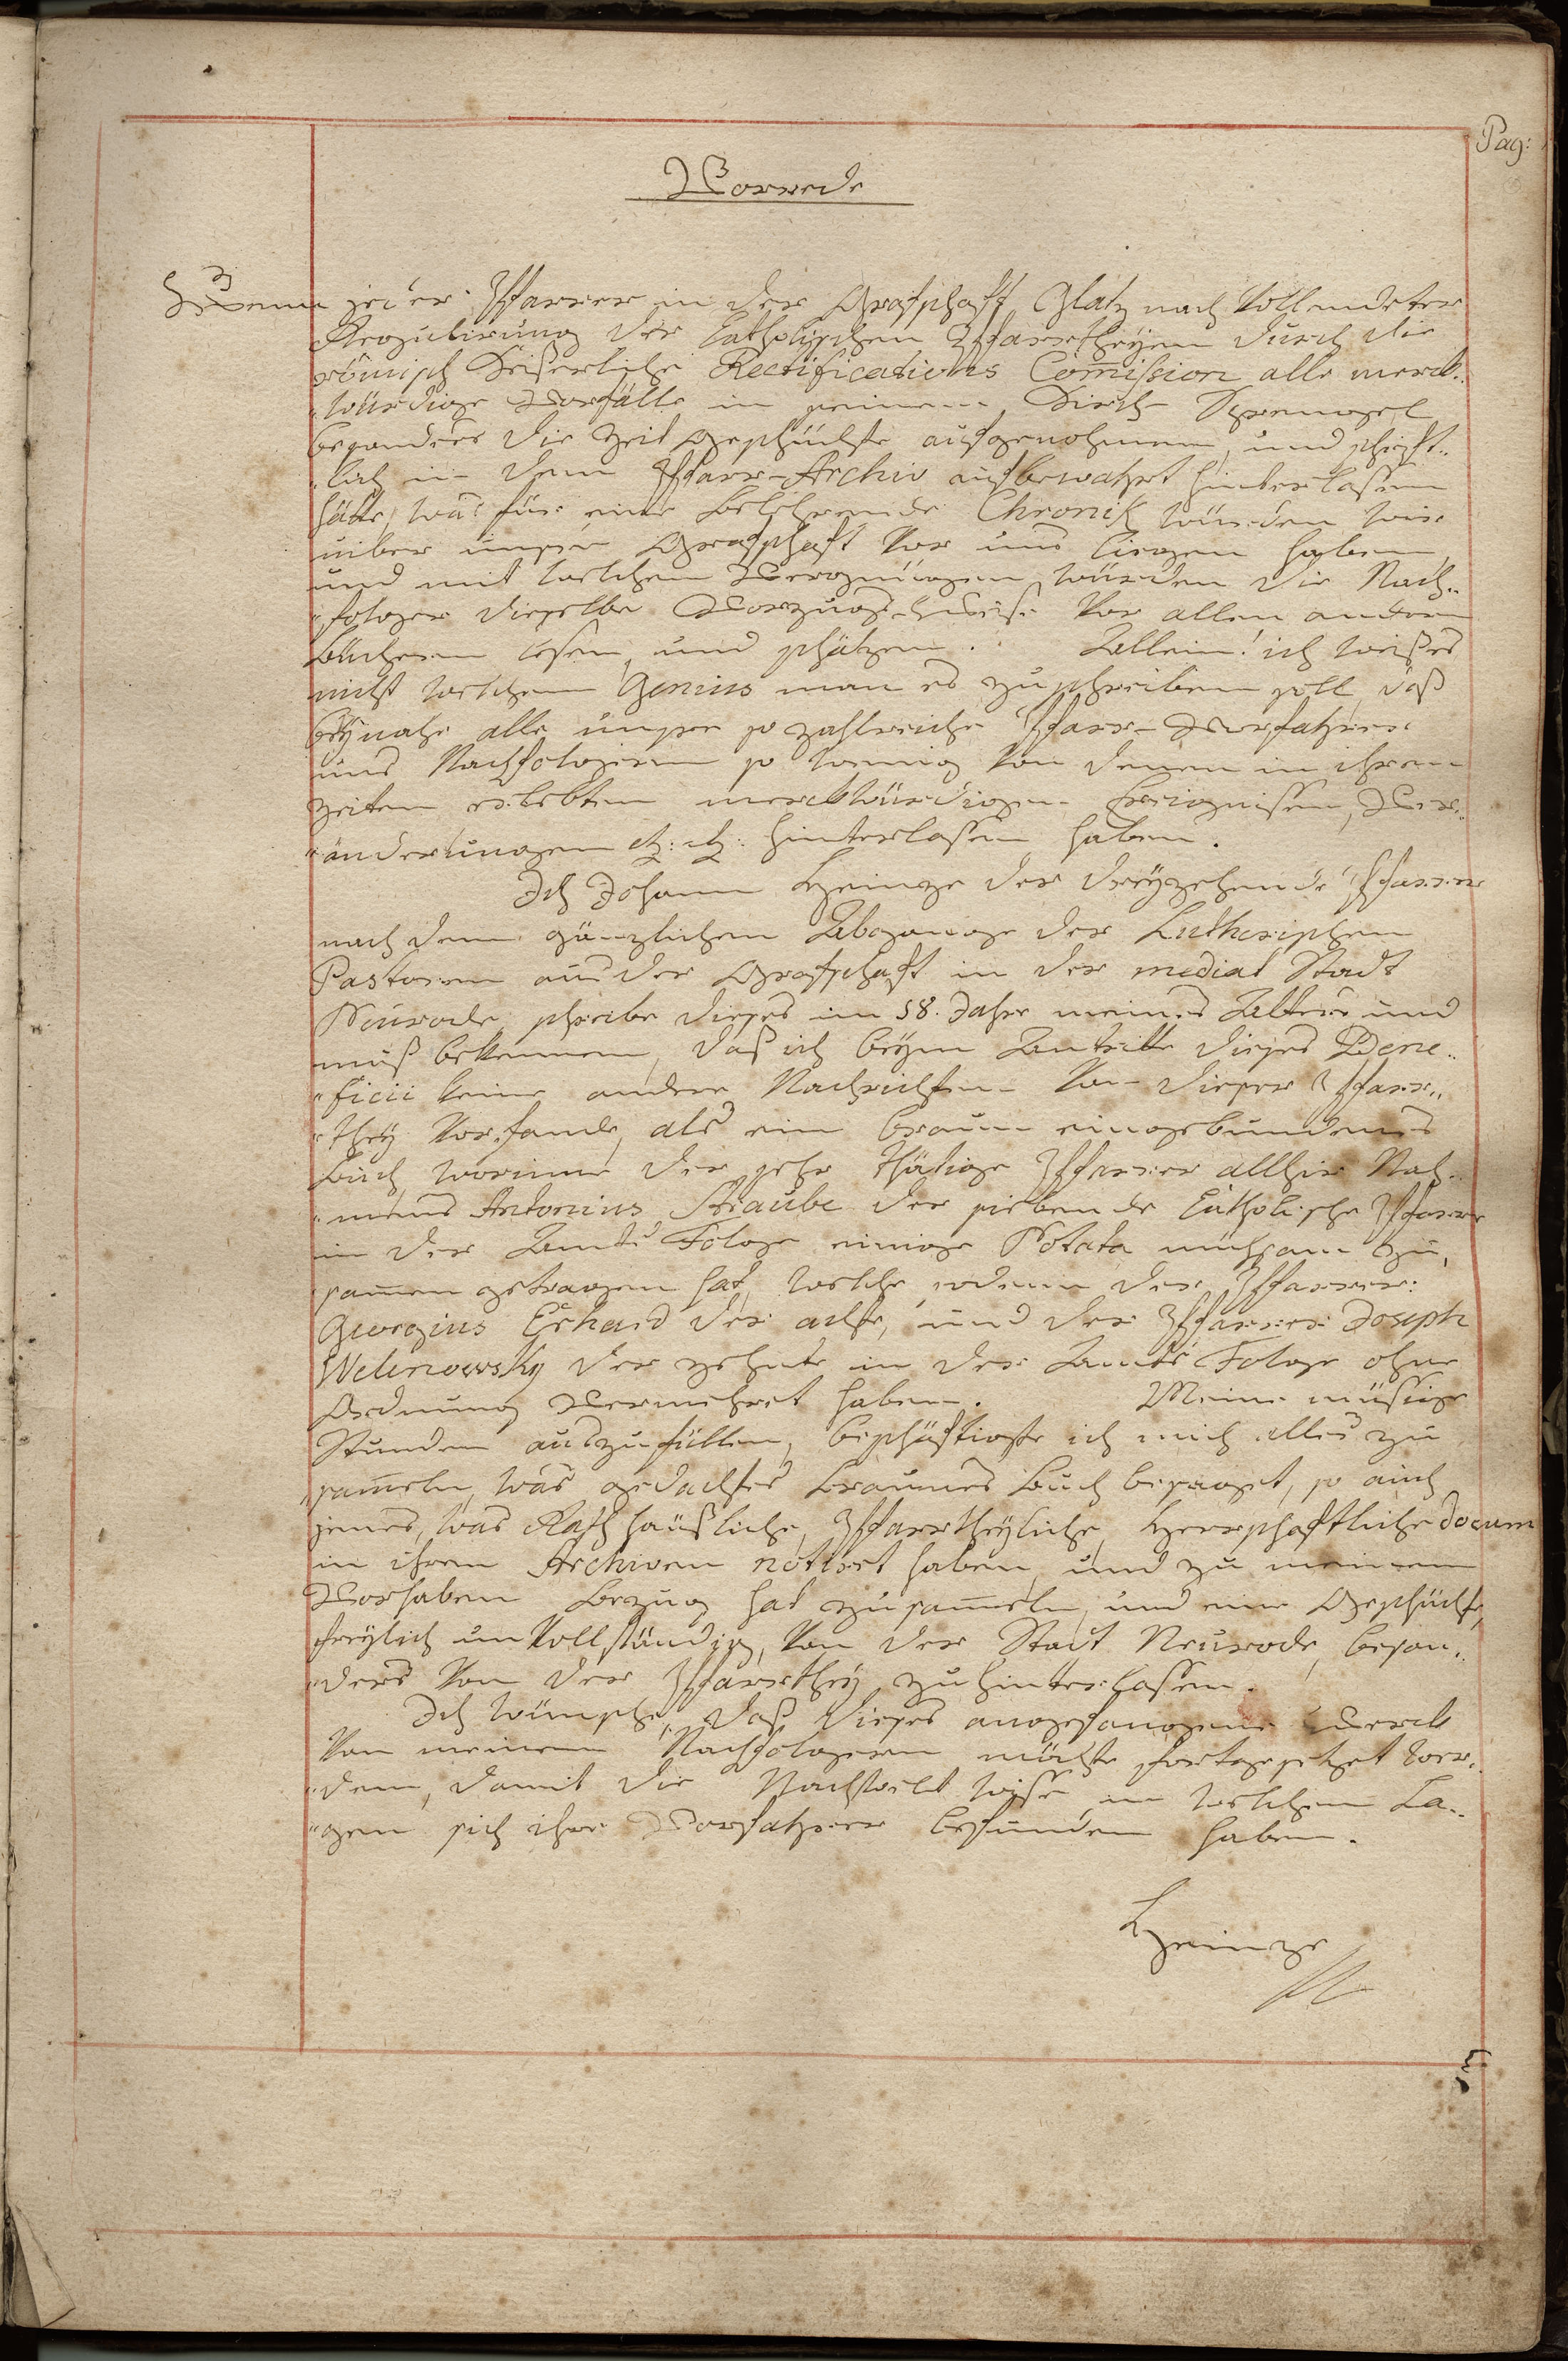 Pag:
Vorrede
Wenn jeder Pfarrer in der Grafschaft Glatz nach vollendeter
Regulirung der Catholischen Pfarrtheyen durch die
römisch Keißerliche Rectifications Com̅ißion alle merck„
„würdige Vorfälle in seinem Kirch-Sprengel
besonders die Zeit Geschüchte aufgenohmen, und schrift„
„lich in dem Pfarr-Archiv aufbewahrt hinterlaßen
hätte, was für eine belehrende Chronik würden wir
uiber unsre Grafschaft vor uns liegen haben,
und mit welchem Vergnügen würden die Nach„
„folger dieselbe Vorzugs-Weise vor allen andern
Büchern lesen, und schätzen. Allein! ich weißes
nicht welchem Genius man es zuschreiben soll, daß
beynahe alle unsre so zahlreiche Pfarr-Vorfahrer
uns Nachfolgern so wenig von denen in ihren
Zeiten erlebten merckwürdigen Ereignißen, Ver„
„änderungen etz: etz: hinterlaßen haben.
Ich Johann Heinze der dreyzehende Pfarrer
nach dem gänzlichen Abgange der Lutherischen
Pastoren aus der Grafschaft in der mediat Stadt
Neurode, schreibe dieses im 58. Jahr meines Alters und
muß bekennen, daß ich beym Antritte dieses Bene„
„ficii keine andere Nachrichten von dieser Pfarr„
„they vorfande, als ein braun eingebundenes
Buch, worinne der sehr thätige Pfarrer allhier Nah„
„mens Antonius Straube der siebende Catholische Pfarrer
in der Amts Folge einige Notata mühsam zu„
sam̅en getragen hat, welche sodenn der Pfarrer:
Georgius Erhard der achte, und der Pfarrer Joseph
Welinowsky der zehnte in der Amts Folge ohne
Ordnung vermehret haben. Meine müßige
Stunden auszufüllen, beschäftigte ich mich alles zu
sam̅eln, was gedachtes braunes Buch besaget, so auch
jenes, was Rathhäußliche, Pfarrtheyliche, Herrschaftliche Docum
in ihren Archiven notiret haben, und zu meinem
Vorhaben Bezug hat zusam̅eln, und eine Geschüchte,
freylich unvollständig, von der Stadt Neurode, beson„
„ders von der Pfarrthey zu hinterlaßen.
Ich wünsche, daß dieses angefangene Werck
von meinen Nachfolgern möchte fortgesetzet wer„
„den, damit die Nachwelt wiße, in welchen La„
„gen sich ihre Vorfahrer befunden haben.
Heinze